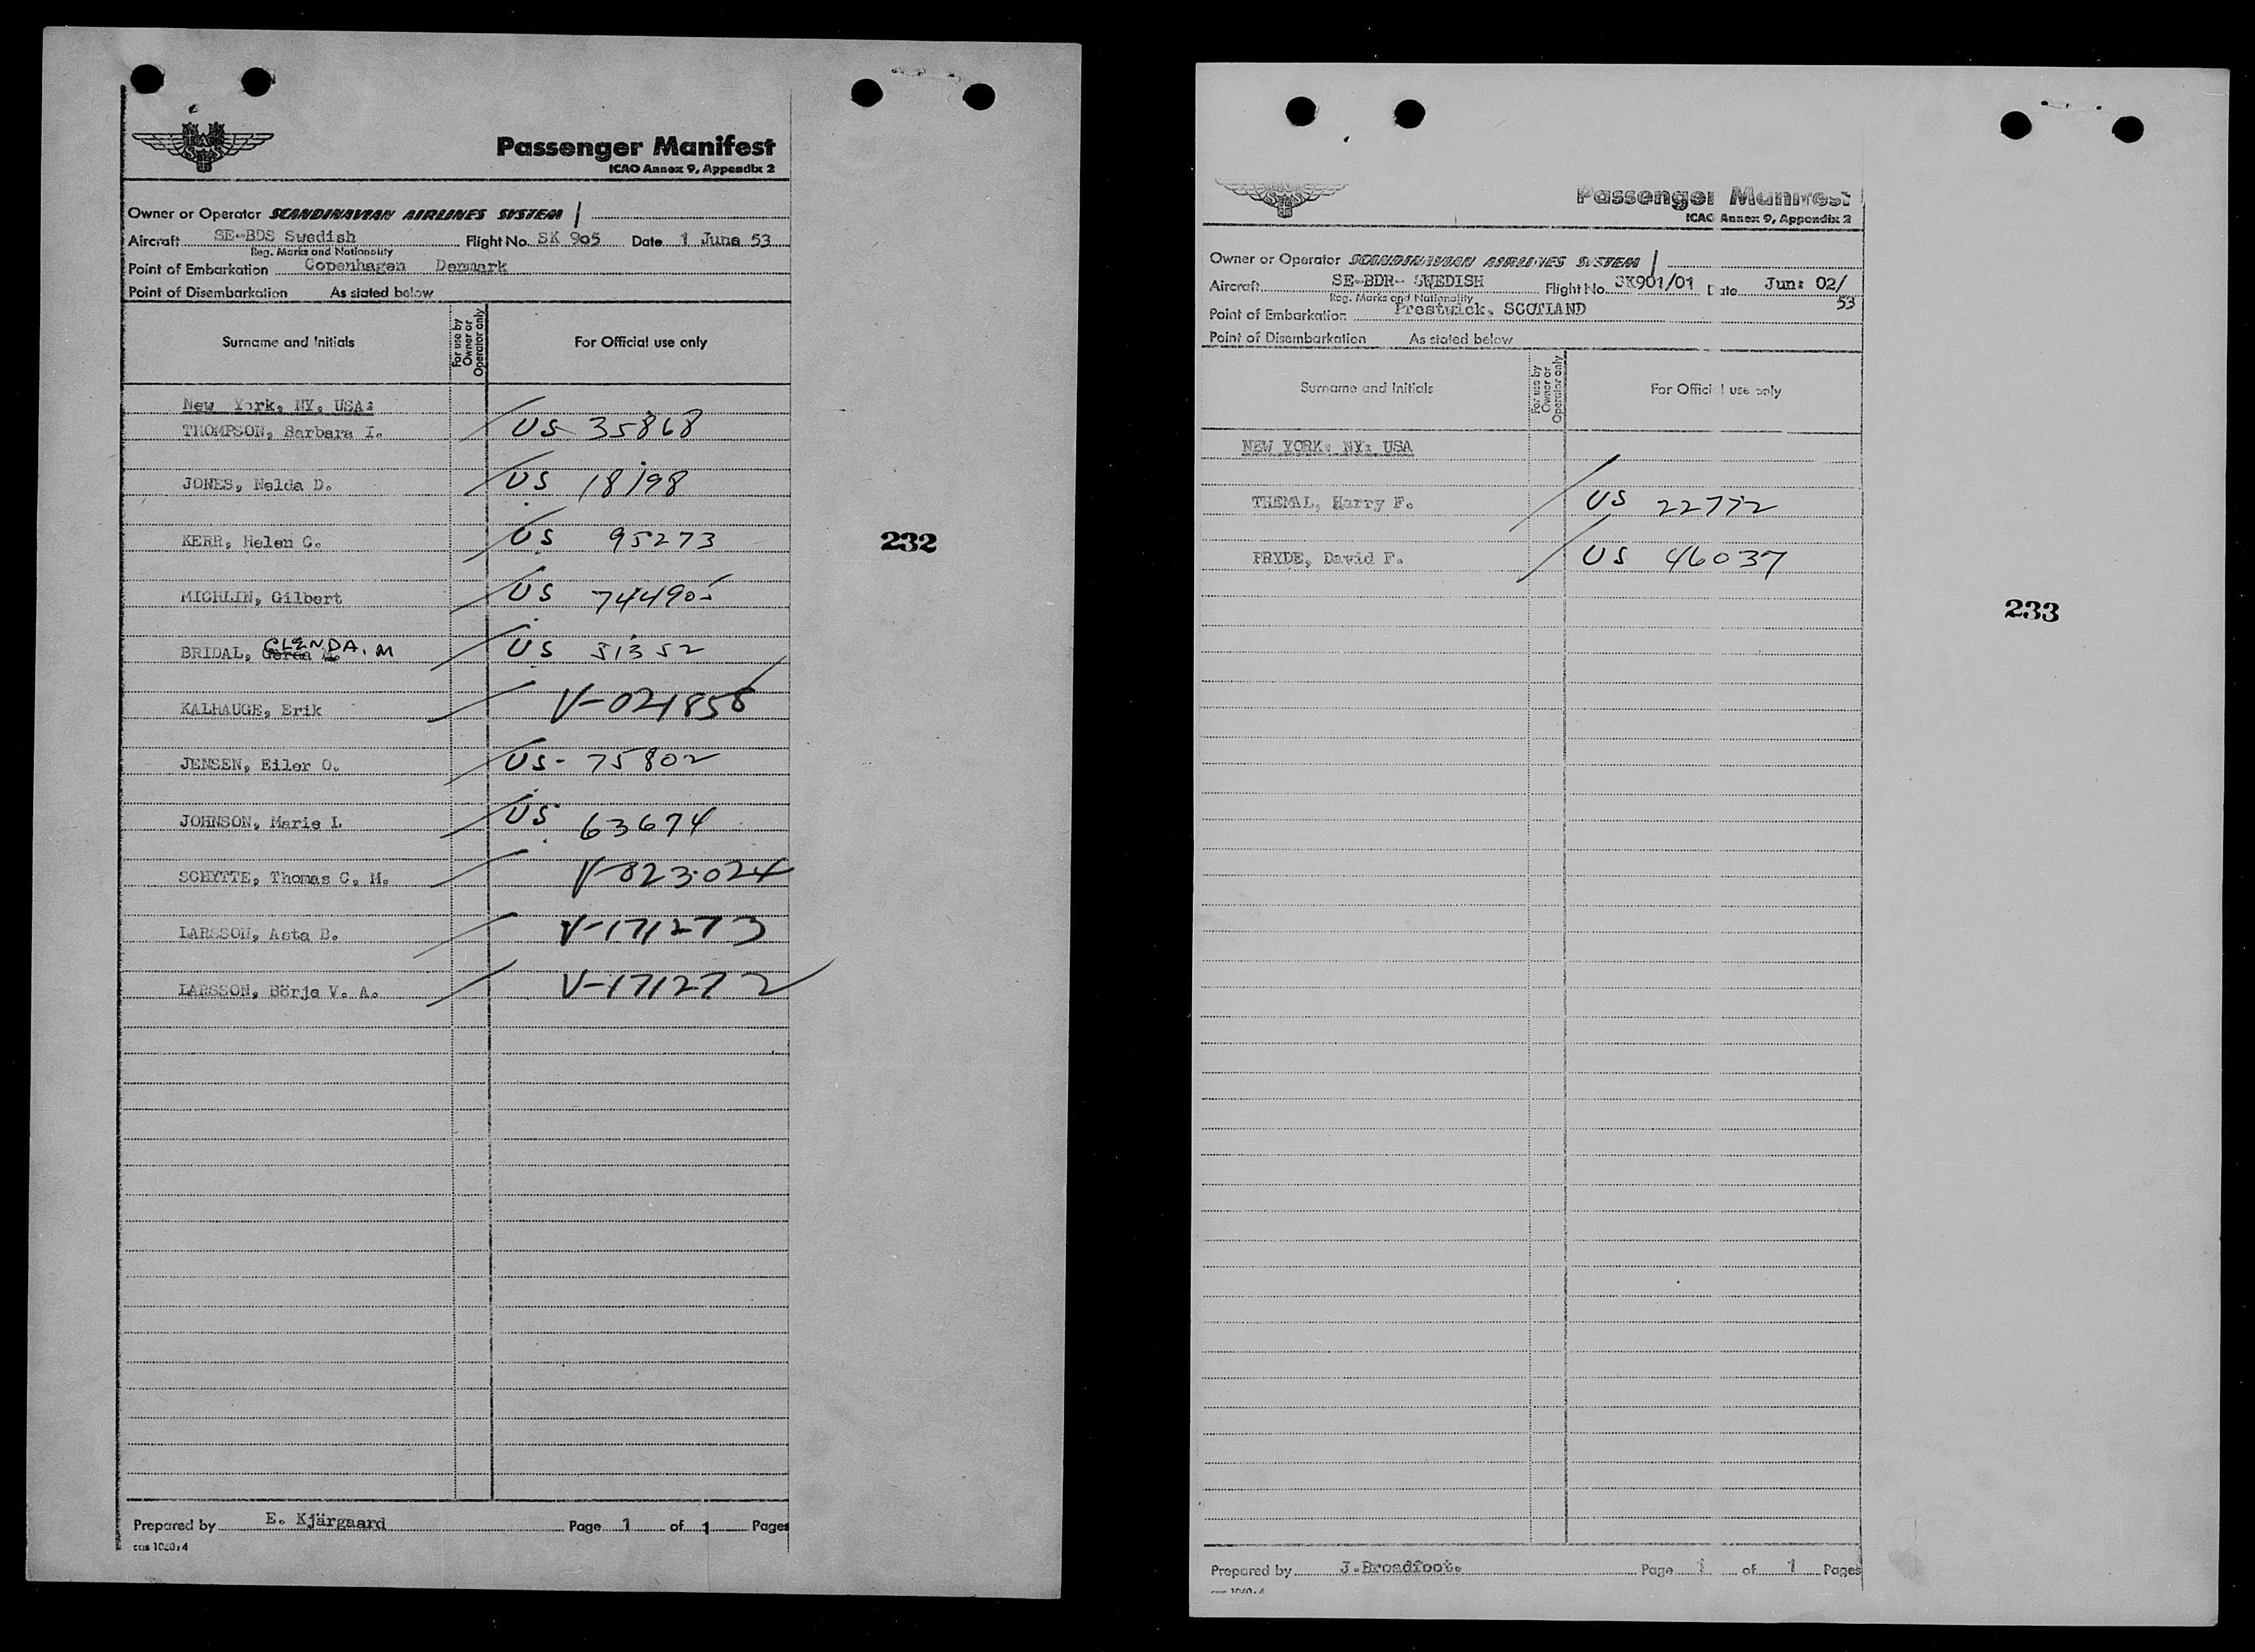 Passenger Manifest
ICAO Annex 9, Appendix 2
Owner or Operator SCANDINAVIAN AIRLINES SYSTEM
Aircraft SE-BDS Swedish Flight No. SK 905 Date 1 June 53
Reg. Marks and Nationality
Point of Embarkation Copenhagen Denmark
Point of Disembarkation As stated below
Surname and Initials For use by Owner or Operator only For Official use only
New York, NY, USA:
THOMPSON, Barbara I. US 35868
JONES, Nelda D. US 18198
KERR, Helen C. US 95273
MICHLIN, Gilbert US 744905
GLENDA. M
BRIDAL, Gerda M. US 51352
KALHAUGE, Erik V-021858
JENSEN, Eiler O. US- 75802
JOHNSON, Marie I. US 63674
SCHYTTE, Thomas C. M. V-823024
LARSSON, Asta B. V-171273
LARSSON, Börje V. A. V-171272
232
Prepared by E. Kjärgaard Page 1 of 1 Pages
Passenger Manifest
ICAO Annex 9, Appendix 2
Owner or Operator SCANDINAVIAN AIRLINES SYSTEM
Aircraft SE-BDR- SWEDISH Flight No. SK901/01 Date Jun: 02/
53
Reg. Marks and Nationality
Point of Embarkation Prestwick, SCOTLAND
Point of Disembarkation As stated below
Surname and Initials For use by Owner or Operator only For Official use only
NEW YORK: NY: USA
THEMAL, Harry F. US 22772
PRYDE, David F. US 46037
233
Prepared by J.Broadfoot. Page 1 of 1 Pages